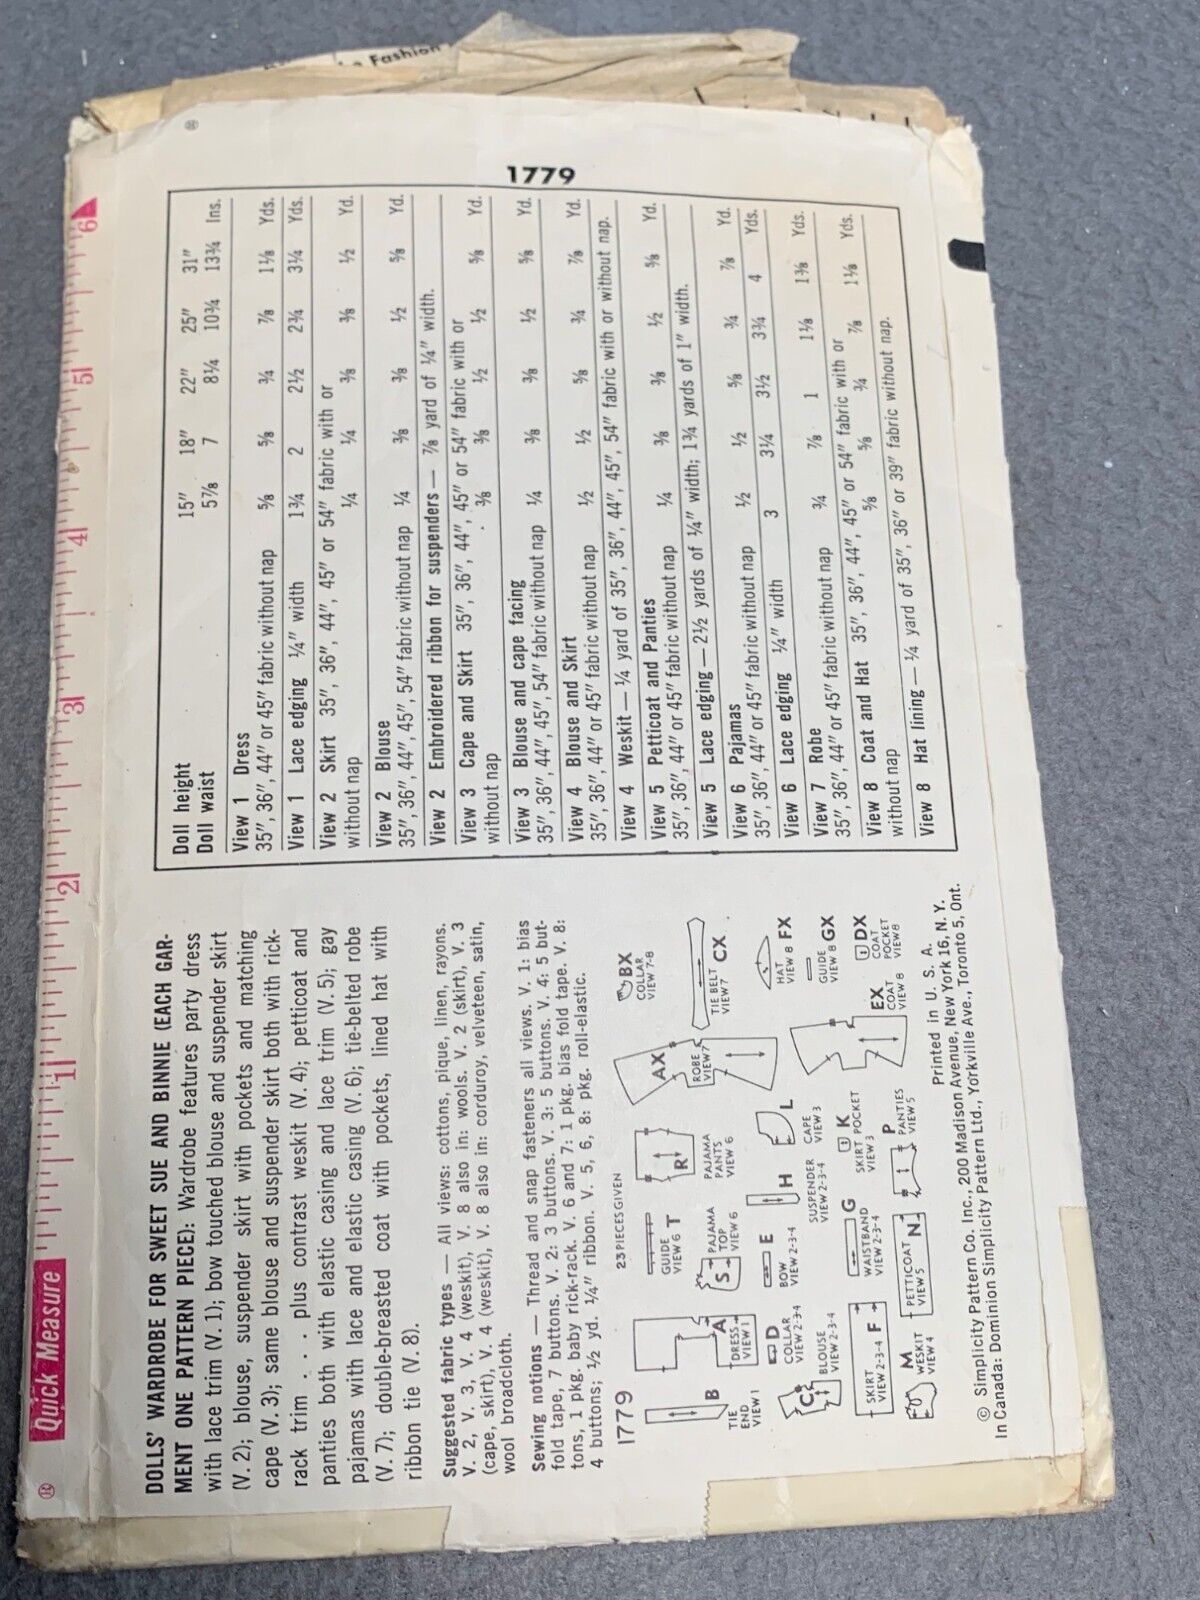 Fashion
®
Quick Measure
1 2 3 4 5 6
®
DOLLS' WARDROBE FOR SWEET SUE AND BINNIE (EACH GAR-
MENT ONE PATTERN PIECE): Wardrobe features party dress
with lace trim (V. 1); bow touched blouse and suspender skirt
(V. 2); blouse, suspender skirt with pockets and matching
cape (V. 3); same blouse and suspender skirt both with rick-
rack trim . . . plus contrast weskit (V. 4); petticoat and
panties both with elastic casing and lace trim (V. 5); gay
pajamas with lace and elastic casing (V. 6); tie-belted robe
(V. 7); double-breasted coat with pockets, lined hat with
ribbon tie (V. 8).
Suggested fabric types — All views: cottons, pique, linen, rayons.
V. 2, V. 3, V. 4 (weskit), V. 8 also in: wools. V. 2 (skirt), V. 3
(cape, skirt), V. 4 (weskit), V. 8 also in: corduroy, velveteen, satin,
wool broadcloth.
Sewing notions — Thread and snap fasteners all views. V. 1: bias
fold tape, 7 buttons. V. 2: 3 buttons. V. 3: 5 buttons. V. 4: 5 but-
tons, 1 pkg. baby rick-rack. V. 6 and 7: 1 pkg. bias fold tape. V. 8:
4 buttons; ½ yd. ¼" ribbon. V. 5, 6, 8: pkg. roll-elastic.
1779
23 PIECES GIVEN
B
TIE
END
VIEW 1
A
DRESS
VIEW 1
GUIDE
VIEW 6 T
R
PAJAMA
PANTS
VIEW 6
AX
ROBE
VIEW 7
BX
COLLAR
VIEW 7-8
TIE BELT
VIEW 7 CX
C
BLOUSE
VIEW 2-3-4
D
COLLAR
VIEW 2-3-4
S
PAJAMA
TOP
VIEW 6
E
BOW
VIEW 2-3-4
H
SUSPENDER
VIEW 2-3-4
L
CAPE
VIEW 3
HAT
VIEW 8 FX
GUIDE
VIEW 8 GX
SKIRT
VIEW 2-3-4 F
G
WAISTBAND
VIEW 2-3-4
K
SKIRT POCKET
VIEW 3
EX
COAT
VIEW 8
DX
COAT
POCKET
VIEW 8
M
WESKIT
VIEW 4
PETTICOAT
VIEW 5 N
P
PANTIES
VIEW 5
Printed in U. S. A.
© Simplicity Pattern Co. Inc., 200 Madison Avenue, New York 16, N. Y.
In Canada: Dominion Simplicity Pattern Ltd., Yorkville Ave., Toronto 5, Ont.
Doll height 15" 18" 22" 25" 31"
Doll waist 5⅞ 7 8¼ 10¾ 13¾ Ins.
View 1 Dress
35", 36", 44" or 45" fabric without nap ⅝ ⅝ ¾ ⅞ 1⅛ Yds.
View 1 Lace edging ¼" width 1¾ 2 2½ 2¾ 3¼ Yds.
View 2 Skirt 35", 36", 44", 45" or 54" fabric with or
without nap ¼ ¼ ⅜ ⅜ ½ Yd.
View 2 Blouse
35", 36", 44", 45", 54" fabric without nap ¼ ⅜ ⅜ ½ ⅝ Yd.
View 2 Embroidered ribbon for suspenders — ⅞ yard of ¼" width.
View 3 Cape and Skirt 35", 36", 44", 45" or 54" fabric with or
without nap ⅜ ⅜ ½ ½ ⅝ Yd.
View 3 Blouse and cape facing
35", 36", 44", 45", 54" fabric without nap ¼ ⅜ ⅜ ½ ⅝ Yd.
View 4 Blouse and Skirt
35", 36", 44" or 45" fabric without nap ½ ½ ⅝ ¾ ⅞ Yd.
View 4 Weskit — ¼ yard of 35", 36", 44", 45", 54" fabric with or without nap.
View 5 Petticoat and Panties
35", 36", 44" or 45" fabric without nap ¼ ⅜ ⅜ ½ ⅝ Yd.
View 5 Lace edging — 2½ yards of ¼" width; 1¾ yards of 1" width.
View 6 Pajamas
35", 36", 44" or 45" fabric without nap ½ ½ ⅝ ¾ ⅞ Yd.
View 6 Lace edging ¼" width 3 3¼ 3½ 3¾ 4 Yds.
View 7 Robe
35", 36", 44" or 45" fabric without nap ¾ ⅞ 1 1⅛ 1⅜ Yds.
View 8 Coat and Hat 35", 36", 44", 45" or 54" fabric with or
without nap ⅝ ⅝ ¾ ⅞ 1⅛ Yds.
View 8 Hat lining — ¼ yard of 35", 36" or 39" fabric without nap.
1779